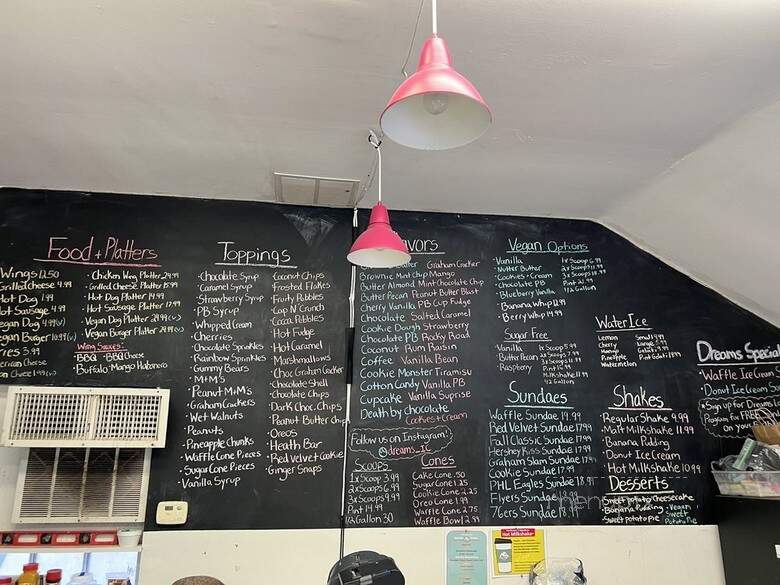 Food + Platters
Wings 12.50
Grilled Cheese 4.99
Hot Dog 1.99
Hot Sausage 4.99
Vegan Dog 4.99 (v)
Vegan Burger 10.99 (v)
Fries 3.99
Cheese
1.99
• Chicken Wing Platter 24.99
• Grilled Cheese Platter 15.99
• Hot Dog Platter 14.99
• Hot Sausage Platter 17.99
• Vegan Dog Platter 24.99 (v)
• Vegan Burger Platter 24.99 (v)
Wing Sauces:
BBQ • BBQ Cheese
• Buffalo • Mango Habanero
Toppings
• Chocolate Syrup
• Caramel Syrup
• Strawberry Syrup
• PB Syrup
• Whipped Cream
• Cherries
• Chocolate Sprinkles
• Rainbow Sprinkles
• Gummy Bears
• M+M's
• Peanut M+M's
• Graham Crackers
• Wet Walnuts
• Peanuts
• Pineapple Chunks
• Waffle Cone Pieces
• Sugar Cone Pieces
• Vanilla Syrup
• Coconut Chips
• Frosted Flakes
• Fruity Pebbles
• Cap N Crunch
• Cocoa Pebbles
• Hot Fudge
• Hot Caramel
• Marshmallows
• Choc Graham Cracker
• Chocolate Shell
• Chocolate Chips
• Dark Choc. Chips
• Peanut Butter Chips
• Oreos
• Heath Bar
• Red Velvet Cookie
• Ginger Snaps
avors
Graham Cracker
Brownie Mint Chip Mango
Butter Almond Mint Chocolate Chip
Butter Pecan Peanut Butter Blast
Cherry Vanilla PB Cup Fudge
Chocolate Salted Caramel
Cookie Dough Strawberry
Chocolate PB Rocky Road
Coconut Rum Raisin
Coffee Vanilla Bean
Cookie Monster Tiramisu
Cotton Candy Vanilla PB
Cupcake Vanilla Suprise
Death by Chocolate
Cookies + Cream
Follow us on Instagram!
@dreams_IC
Scoops
1x Scoop 3.99
2x Scoops 6.99
3x Scoops 9.99
Pint 14.99
1/2 Gallon 30
Cones
Cake Cone .50
Sugar Cone 1.25
Cookie Cone 2.25
Oreo Cone 1.99
Waffle Cone 2.75
Waffle Bowl 2.99
Vegan Options
• Vanilla
• Nutter Butter
• Cookies + Cream
• Chocolate PB
• Blueberry Vanilla
• Banana Whip 12.99
• Berry Whip 14.99
1x Scoop 6.99
2x Scoops 11.99
3x Scoops 18.99
Pint 21.99
1/2 Gallon
Sugar Free
• Vanilla
• Butter Pecan
• Raspberry
1x Scoop 5.99
2x Scoops 7.99
3x Scoops 11.99
Pint 16.99
Milkshake 11.99
1/2 Gallon
Sundaes
Waffle Sundae 14.99
Red Velvet Sundae 17.99
Fall Classic Sundae 17.99
Hershey Kiss Sundae 17.99
Graham Slam Sundae 17.99
Cookie Sundae 17.99
PHL Eagles Sundae 18.99
Flyers Sundae 18.99
76ers Sundae
Water Ice
Lemon
Cherry
Mango
Pineapple
Watermelon
Small 4.99
Large 5.99
Shakes
• Regular Shake 9.99
• Malt Milkshake 11.99
• Banana Pudding
• Donut Ice Cream
• Hot Milkshake 10.99
Desserts
Sweet potato cheesecake
• Banana Pudding
Sweet potato pie
• Vegan Sweet Potato Pie
Dreams Special
• Waffle Ice Cream
• Donut Ice Cream
• Sign up for Dreams
Program for FREE
on your
Hot Milkshake